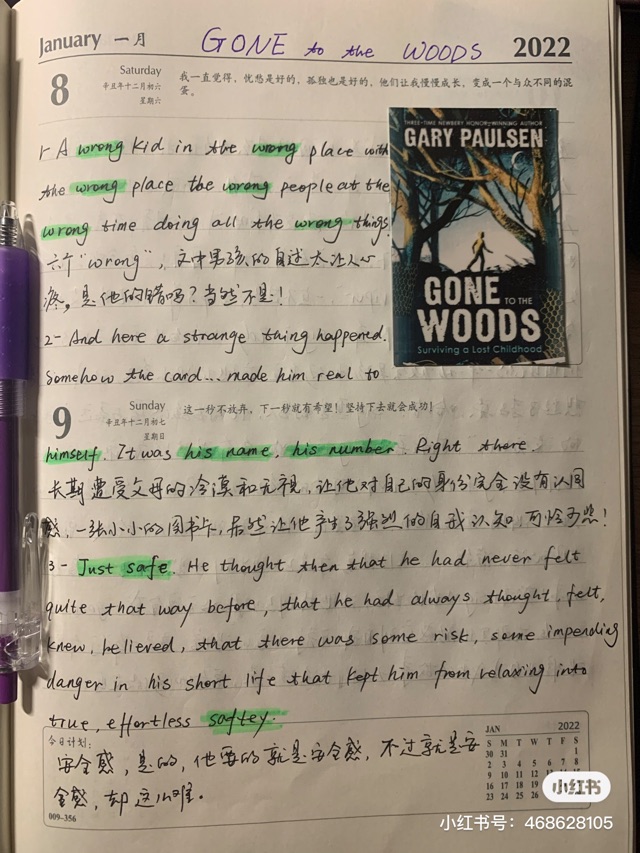 January 一月 GONE to the WOODS 2022
8
Saturday
辛丑年十二月初六
星期六
我一直觉得，忧愁是好的，孤独也是好的，他们让我慢慢成长，变成一个与众不同的混
蛋。
1- A wrong kid in the wrong place with
the wrong place the wrong people at the
wrong time doing all the wrong things.
六个“wrong”，文中男孩的自述太让人心
疼，是他的错吗？当然不是！
2- And here a strange thing happened.
Somehow the card... made him real to
THREE-TIME NEWBERY HONOR-WINNING AUTHOR
GARY PAULSEN
GONE
TO THE
WOODS
Surviving a Lost Childhood
9
Sunday
辛丑年十二月初七
星期日
这一秒不放弃，下一秒就有希望！坚持下去就会成功！
himself. It was his name, his number. Right there.
长期遭受父母的冷漠和无视，让他对自己的身份完全没有认同
感，一张小小的图书卡，居然让他产生了强烈的自我认知，可怜可悲！
3- Just safe. He thought then that he had never felt
quite that way before, that he had always thought, felt,
knew, believed, that there was some risk, some impending
danger in his short life that kept him from relaxing into
true, effortless saftey.
今日计划：
安全感，是的，他要的就是安全感，不过就是安
全感，却这么难。
009-356
JAN 2022
S M T W T F S
30 31 1
2 3 4 5 6 7 8
9 10 11 12 13 14 15
16 17 18 19 20 21 22
23 24 25 26 27 28 29
小红书
小红书号：468628105